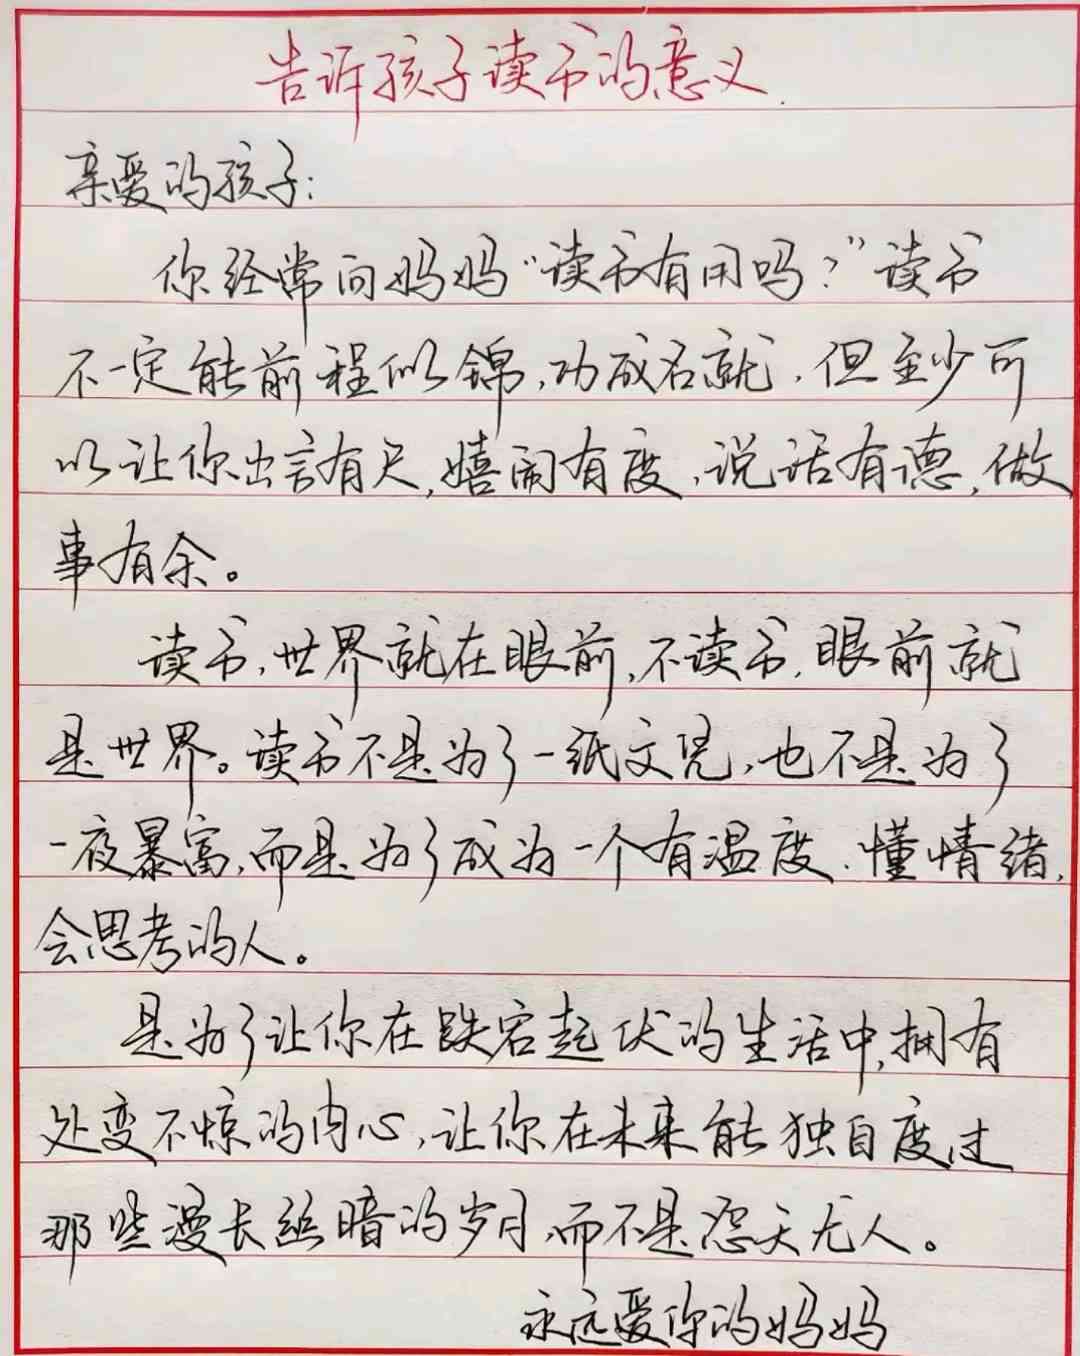 告诉孩子读书的意义
亲爱的孩子:
你经常问妈妈“读书有用吗?”读书
不一定能前程似锦,功成名就,但至少可
以让你出言有尺,嬉闹有度,说话有德,做
事有余。
读书,世界就在眼前,不读书,眼前就
是世界。读书不是为了一纸文凭,也不是为了
一夜暴富,而是为了成为一个有温度、懂情绪,
会思考的人。
是为了让你在跌宕起伏的生活中,拥有
处变不惊的内心,让你在未来能独自度过
那些漫长幽暗的岁月,而不是怨天尤人。
永远爱你的妈妈